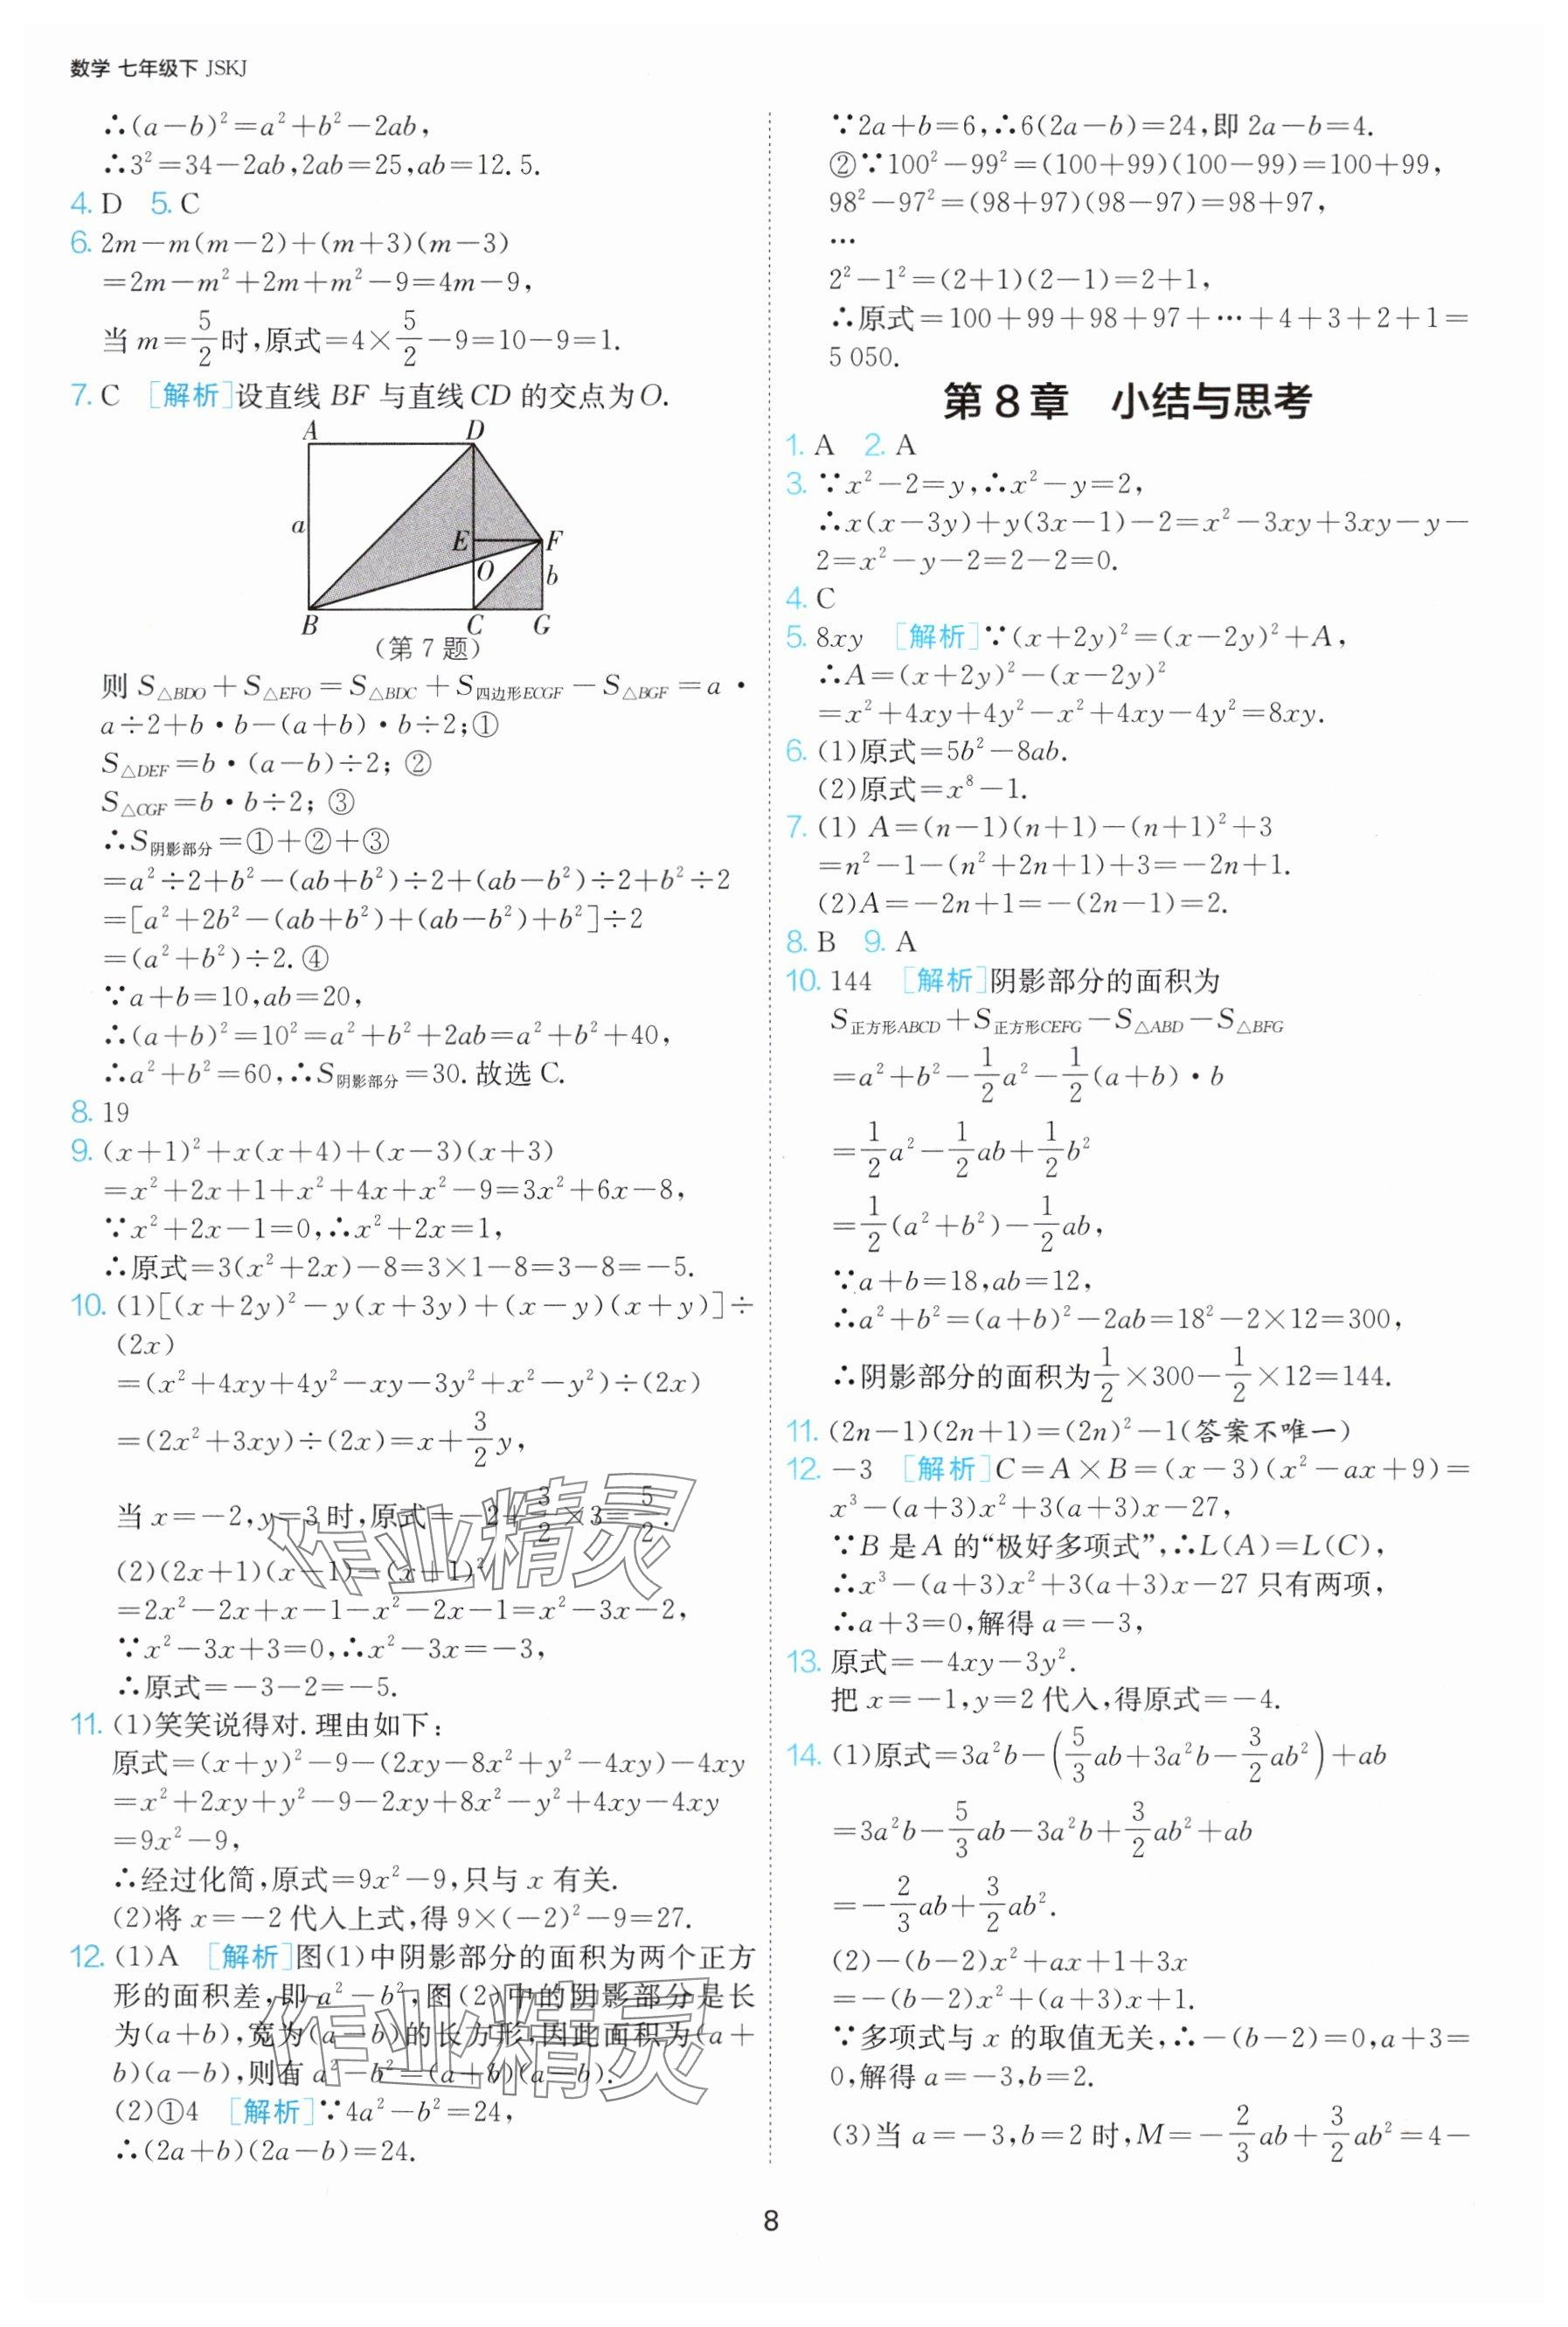 数学 七年级下 JSKJ
∴(a－b)²＝a²＋b²－2ab,
∴3²＝34－2ab,2ab＝25,ab＝12.5.
4. D 5. C
6. 2m－m(m－2)＋(m＋3)(m－3)
＝2m－m²＋2m＋m²－9＝4m－9,
当 m＝5/2时,原式＝4×5/2－9＝10－9＝1.
7. C [解析]设直线 BF 与直线 CD 的交点为 O.
A D
a
E F
O b
B C G
(第 7 题)
则 S△BDO＋S△EFO＝S△BDC＋S四边形ECGF－S△BGF＝a·
a÷2＋b·b－(a＋b)·b÷2;①
S△DEF＝b·(a－b)÷2; ②
S△CGF＝b·b÷2; ③
∴S阴影部分＝①＋②＋③
＝a²÷2＋b²－(ab＋b²)÷2＋(ab－b²)÷2＋b²÷2
＝[a²＋2b²－(ab＋b²)＋(ab－b²)＋b²]÷2
＝(a²＋b²)÷2.④
∵a＋b＝10,ab＝20,
∴(a＋b)²＝10²＝a²＋b²＋2ab＝a²＋b²＋40,
∴a²＋b²＝60,∴S阴影部分＝30.故选 C.
8. 19
9. (x＋1)²＋x(x＋4)＋(x－3)(x＋3)
＝x²＋2x＋1＋x²＋4x＋x²－9＝3x²＋6x－8,
∵x²＋2x－1＝0,∴x²＋2x＝1,
∴原式＝3(x²＋2x)－8＝3×1－8＝3－8＝－5.
10. (1)[(x＋2y)²－y(x＋3y)＋(x－y)(x＋y)]÷
(2x)
＝(x²＋4xy＋4y²－xy－3y²＋x²－y²)÷(2x)
＝(2x²＋3xy)÷(2x)＝x＋3/2y,
当 x＝－2,y＝3 时,原式＝－2＋3/2×3＝5/2.
(2)(2x＋1)(x－1)－(x＋1)²
＝2x²－2x＋x－1－x²－2x－1＝x²－3x－2,
∵x²－3x＋3＝0,∴x²－3x＝－3,
∴原式＝－3－2＝－5.
11. (1)笑笑说得对.理由如下:
原式＝(x＋y)²－9－(2xy－8x²＋y²－4xy)－4xy
＝x²＋2xy＋y²－9－2xy＋8x²－y²＋4xy－4xy
＝9x²－9,
∴经过化简,原式＝9x²－9,只与 x 有关.
(2)将 x＝－2 代入上式,得 9×(－2)²－9＝27.
12. (1)A [解析]图(1)中阴影部分的面积为两个正方
形的面积差,即 a²－b²,图(2)中的阴影部分是长
为(a＋b),宽为(a－b)的长方形,因此面积为(a＋
b)(a－b),则有 a²－b²＝(a＋b)(a－b).
(2)①4 [解析]∵4a²－b²＝24,
∴(2a＋b)(2a－b)＝24.
∵2a＋b＝6,∴6(2a－b)＝24,即 2a－b＝4.
②∵100²－99²＝(100＋99)(100－99)＝100＋99,
98²－97²＝(98＋97)(98－97)＝98＋97,
…
2²－1²＝(2＋1)(2－1)＝2＋1,
∴原式＝100＋99＋98＋97＋…＋4＋3＋2＋1＝
5 050.
第 8 章 小结与思考
1. A 2. A
3. ∵x²－2＝y,∴x²－y＝2,
∴x(x－3y)＋y(3x－1)－2＝x²－3xy＋3xy－y－
2＝x²－y－2＝2－2＝0.
4. C
5. 8xy [解析]∵(x＋2y)²＝(x－2y)²＋A,
∴A＝(x＋2y)²－(x－2y)²
＝x²＋4xy＋4y²－x²＋4xy－4y²＝8xy.
6. (1)原式＝5b²－8ab.
(2)原式＝x⁸－1.
7. (1) A＝(n－1)(n＋1)－(n＋1)²＋3
＝n²－1－(n²＋2n＋1)＋3＝－2n＋1.
(2)A＝－2n＋1＝－(2n－1)＝2.
8. B 9. A
10. 144 [解析]阴影部分的面积为
S正方形ABCD＋S正方形CEFG－S△ABD－S△BFG
＝a²＋b²－1/2a²－1/2(a＋b)·b
＝1/2a²－1/2ab＋1/2b²
＝1/2(a²＋b²)－1/2ab,
∵a＋b＝18,ab＝12,
∴a²＋b²＝(a＋b)²－2ab＝18²－2×12＝300,
∴阴影部分的面积为1/2×300－1/2×12＝144.
11. (2n－1)(2n＋1)＝(2n)²－1(答案不唯一)
12. －3 [解析]C＝A×B＝(x－3)(x²－ax＋9)＝
x³－(a＋3)x²＋3(a＋3)x－27,
∵B 是 A 的“极好多项式”,∴L(A)＝L(C),
∴x³－(a＋3)x²＋3(a＋3)x－27 只有两项,
∴a＋3＝0,解得 a＝－3,
13. 原式＝－4xy－3y².
把 x＝－1,y＝2 代入,得原式＝－4.
14. (1)原式＝3a²b－(5/3ab＋3a²b－3/2ab²)＋ab
＝3a²b－5/3ab－3a²b＋3/2ab²＋ab
＝－2/3ab＋3/2ab².
(2)－(b－2)x²＋ax＋1＋3x
＝－(b－2)x²＋(a＋3)x＋1.
∵多项式与 x 的取值无关,∴－(b－2)＝0,a＋3＝
0,解得 a＝－3,b＝2.
(3)当 a＝－3,b＝2 时,M＝－2/3ab＋3/2ab²＝4－
8
作业精灵
作业精灵